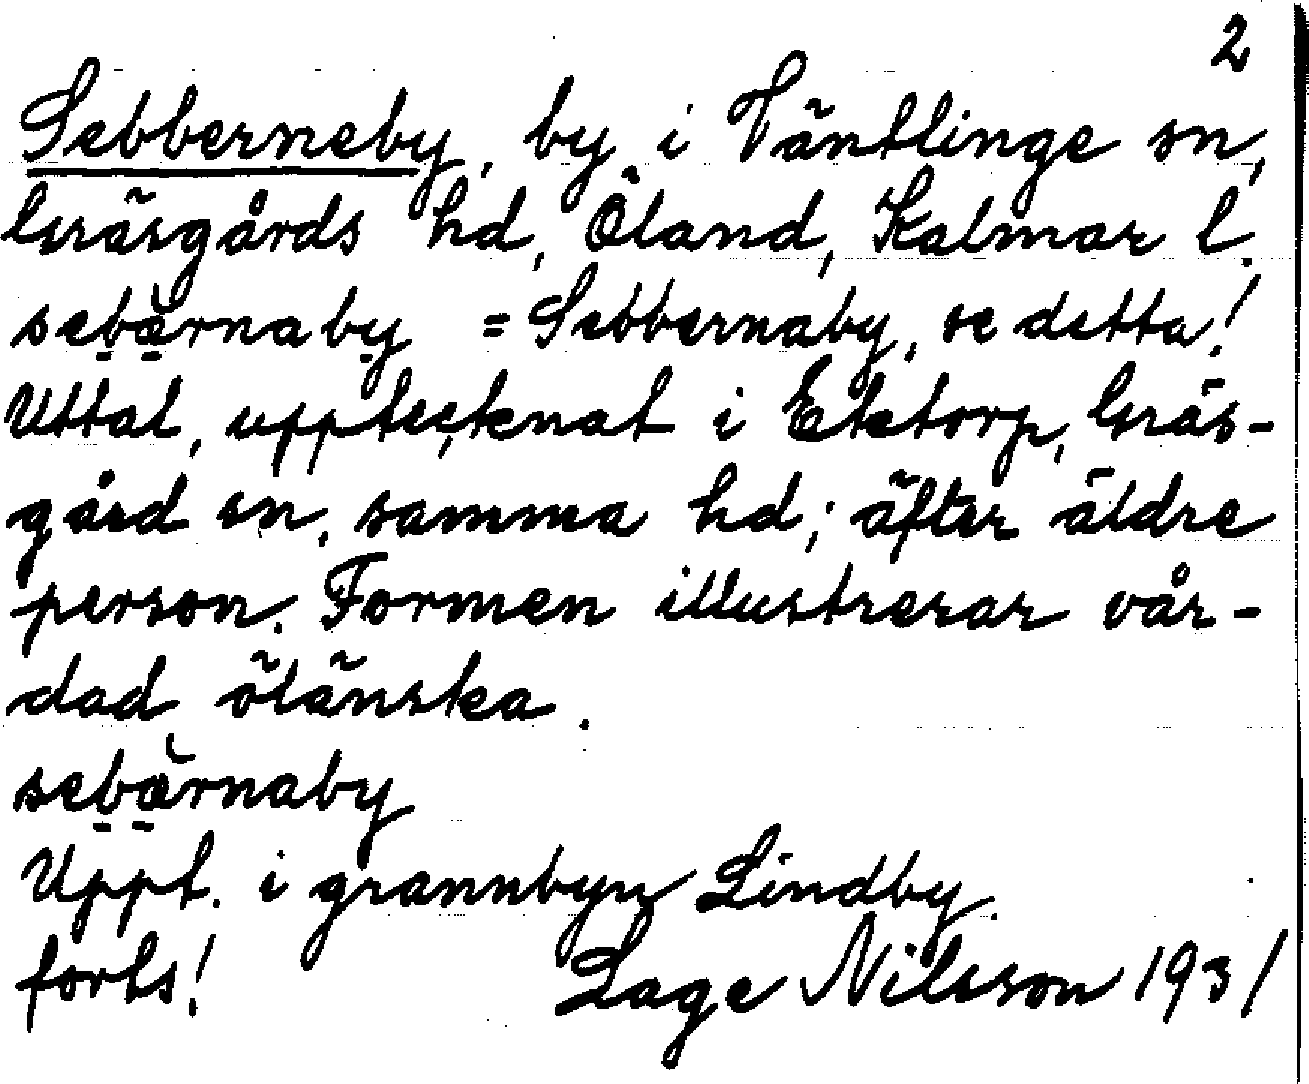 2
Sebberneby, by i Väntlinge sn,
Gräsgårds hd, Öland, Kalmar l.
sebärnaby = Sebbernaby, se detta!
Uttal, upptecknat i Eketorp, Gräs-
gård sn, samma hd; äfter äldre
person. Formen illustrerar vår-
dad öländska.
sebärnaby
Uppt. i grannbyn Lindby.
forts! Lage Nilsson 1931